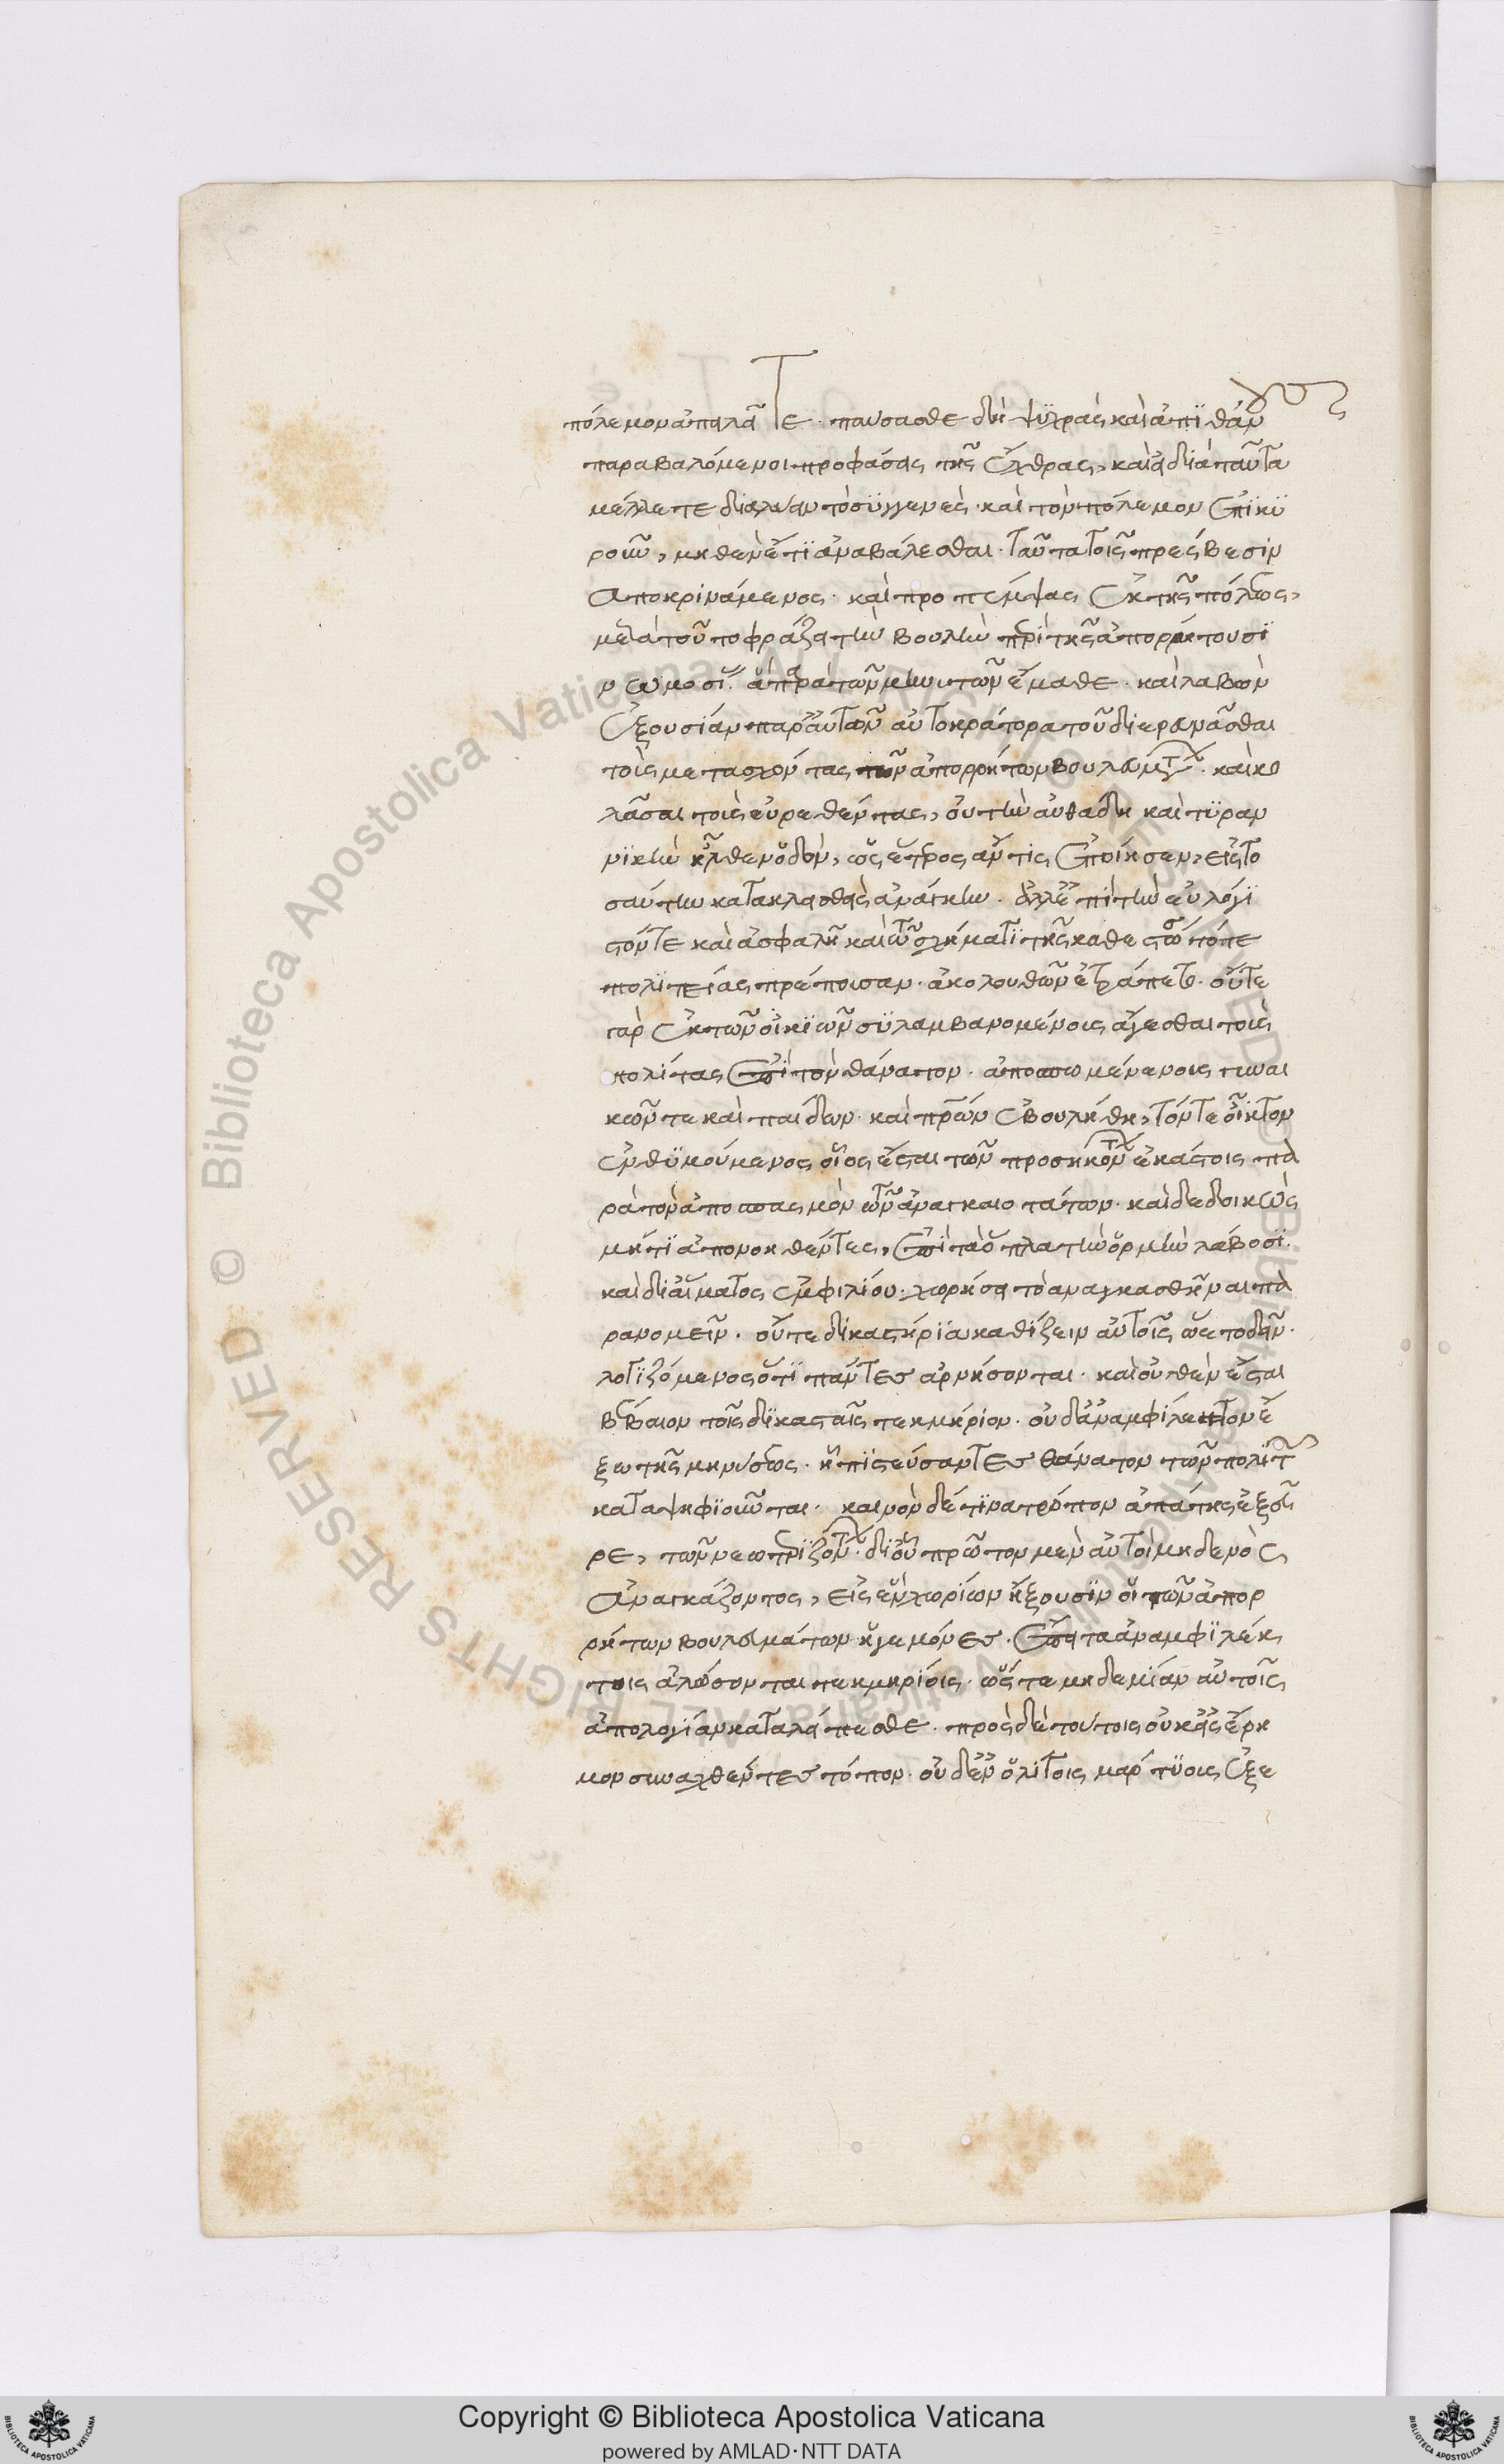 πόλεμον ἀπαλᾶτε· παύσασθε δὴ ψϋχρὰς καὶ ἀπϊθάν
παραβαλόμενοι προφάσεις τῆς ἔχθρας, καὶ εἰ διὰ ταῦτα
μέλλετε διαλύειν τὸ σϋγγενὲς· καὶ τὸν πόλεμον ἐπϊκϋ
ροῦν, μηθὲν ἔτϊ ἀναβάλεσθαι· ταῦτα τοῖς πρέσβεσϊν
ἀποκρινάμενος· καὶ προπέμψας ἐκ τῆς πόλεως,
μετὰ τοῦτο φράζει τὴν βουλὴν περὶ τῆς ἀπορρήτου σϋ
νωμοσίας ἃ παρὰ τῶν μηνυτῶν ἔμαθε· καὶ λαβὼν
ἐξουσίαν παρ' αὐτῶν αὐτοκράτορα τοῦ διερευνᾶσθαι
τοὺς μετασχόντας τῶν ἀπορρήτων βουλευμάτων· καὶ κο
λᾶσαι τοὺς εὑρεθέντας, οὐ τὴν αὐθάδη καὶ τϋραν
νϊκὴν ἦλθεν ὁδὸν, ὡς ἕτερος ἄν τις ἐποίησεν, εἰς το
σαύτην κατακλεισθεὶς ἀνάγκην· ἀλλ' ἐπὶ τὴν εὐλόγϊ
στόν τε καὶ ἀσφαλῆ καὶ τῷ σχήματϊ τῆς καθεστώσης τότε
πολϊτείας πρέπουσαν· ἀκολουθῶν ἐτράπετο· οὔτε
γὰρ ἐκ τῶν οἰκϊῶν σϋλαμβανομένους ἄγεσθαι τοὺς
πολίτας ἐπὶ τὸν θάνατον· ἀποσπωμένενους γυναι
κῶν τε καὶ παίδων· καὶ πατέρων ἐβουλήθη, τόν τε οἶκτον
ἐνθϋμούμενος οἷος ἔσται τῶν προσηκόντων ἑκάστοις πα
ρὰ τὸν ἀποσπασμὸν τῶν ἀναγκαιοτάτων· καὶ δεδοικὼς
μή τϊ ἀπονοηθέντες, ἐπὶ τὰ ὅπλα τὴν ὁρμὴν λάβωσϊ·
καὶ δι' αἵματος ἐμφιλίου· χωρήσει τὸ ἀναγκασθῆναι πα
ρανομεῖν· οὔτε δϊκαστήρϊα καθίζειν αὐτοῖς ᾤετο δεῖν·
λογϊζόμενος ὅτϊ πάντες ἀρνήσονται· καὶ οὐθὲν ἔσται
βέβαιον τοῖς δϊκασταῖς τεκμήριον· οὐδ' ἀναμφίλεκτον ἔ
ξω τῆς μηνύσεως· ᾗ πϊστεύσαντες θάνατον τῶν πολϊτῶν
καταψηφϊοῦνται· καινὸν δέ τϊνα τρόπον ἀπάτης ἐξεῦ
ρε, τῶν νεωτερϊζόντων· δϊ' οὗ πρῶτον μὲν αὐτοὶ μηδενὸς
ἀναγκάζοντος, εἰς ἓν χωρίον ἥξουσϊν οἱ τῶν ἀπορ
ρήτων βουλευμάτων ἡγεμόνες· ἔπειτα ἀναμφϊλέκ
τοις ἁλώσονται τεκμηρίοις· ὥστε μηδεμίαν αὐτοῖς
ἀπολογίαν καταλείπεσθε· πρὸς δὲ τούτοις οὐκ εἰς ἔρη
μον συναχθέντες τόπον· οὐδ' ἐν ὀλίγοις μάρτϋσις ἐξε